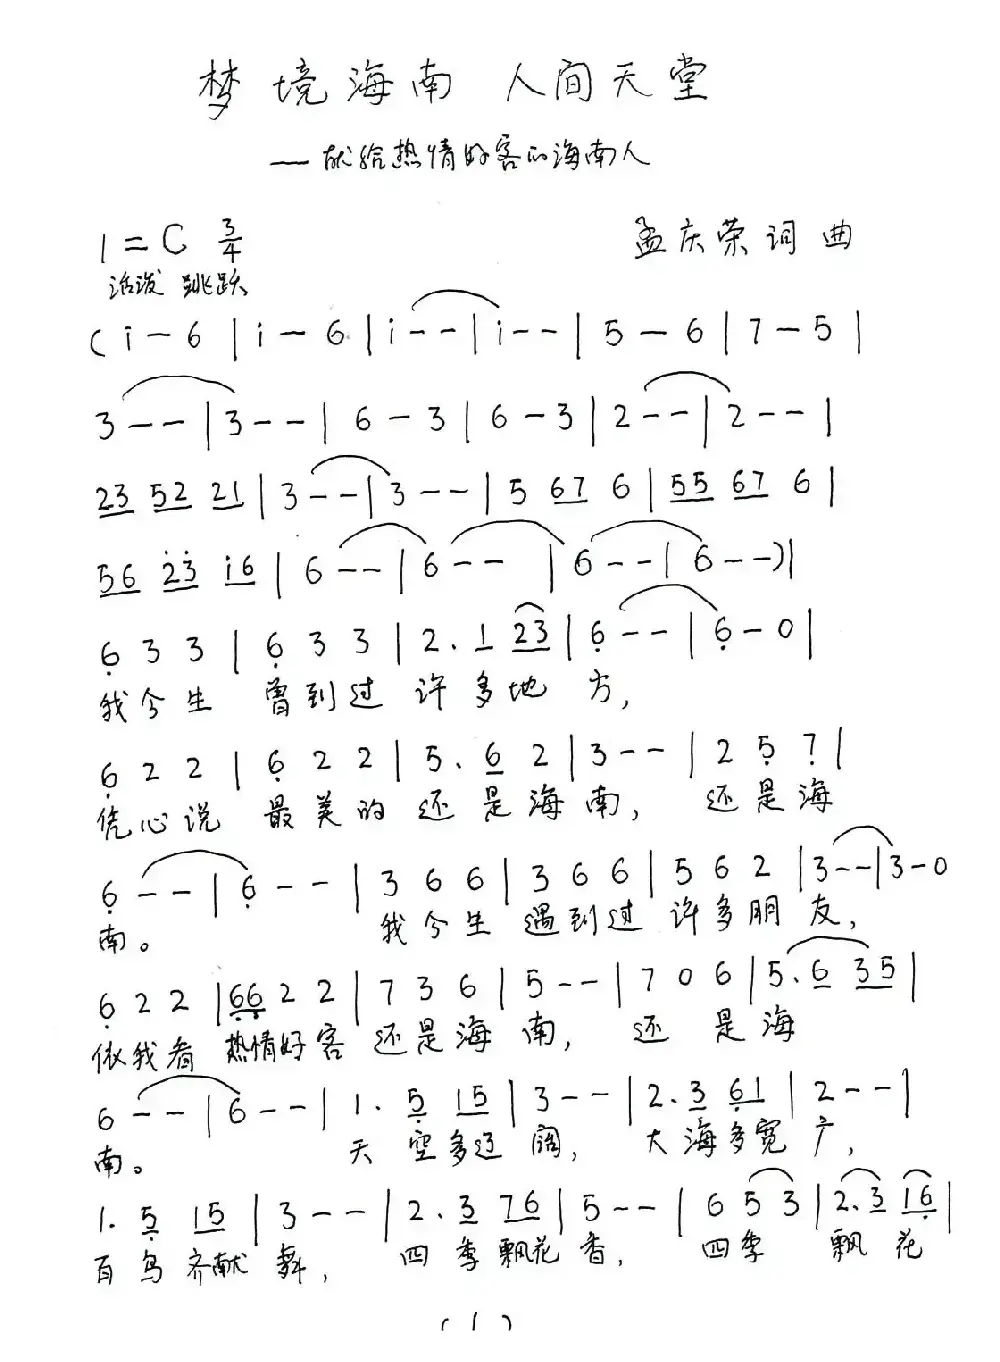 梦境海南 人间天堂
——献给热情好客的海南人
1=C 3/4
孟庆荣词曲
活泼 跳跃
(i-6|i-6|i--|i--|5-6|7-5|
3--|3--|6-3|6-3|2--|2--|
23 52 21|3--|3--|5 67 6|55 67 6|
56 2̇3̇ i6|6--|6--|6--|6--)|
6̣ 3 3|6̣ 3 3|2. 1 23|6̣--|6̣-0|
我今生 曾到过 许多地方,
6̣ 2 2|6̣ 2 2|5. 6̣ 2|3--|2 5̣ 7̣|
凭心说 最美的 还是海南, 还是海
6̣--|6̣--|3 6 6|3 6 6|5 6 2|3--|3-0
南。 我今生 遇到过 许多朋友,
6̣ 2 2|6̣6̣ 2 2|7 3 6|5--|7 0 6|5. 6 35|
依我看 热情好客 还是海南, 还是海
6--|6--|1. 5̣ 15|3--|2. 3 6̣1|2--|
南。 天空多辽阔, 大海多宽广,
1. 5̣ 15|3--|2. 3 76|5--|6 5 3|2. 3 16̣|
百鸟齐献舞, 四季飘花香, 四季飘花
(1)